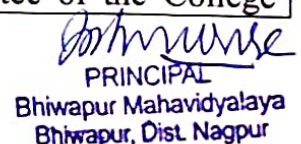 of the College
PRINCIPAL
Bhiwapur Mahavidyalaya
Bhiwapur, Dist. Nagpur